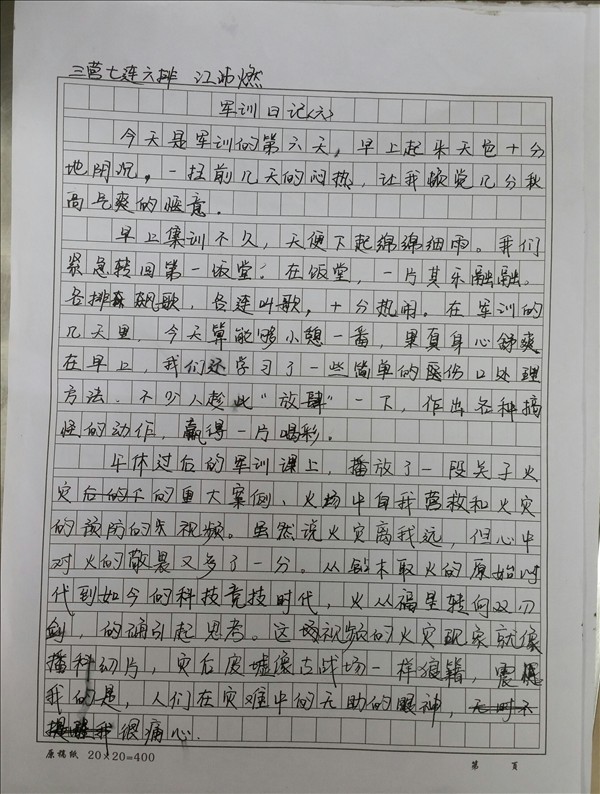 三营七连六排 江沛燃
军训日记(六)
今天是军训的第六天。早上起来天色十分
地阴沉。一扫前几天的闷热，让我倾觉几分秋
高气爽的惬意.
早上集训不久，天便下起绵绵细雨。我们
紧急转回第一饭堂；在饭堂，一片其乐融融。
各排飙歌，各连叫歌，十分热闹。在军训的
几天里，今天算能够小憩一番，果真身心舒爽
在早上，我们还学习了一些简单的医伤口处理
方法.不少人趁此"放肆"一下，作出各种搞
怪的动作，赢得一片喝彩.
午休过后的军训课上，播放了一段关于火
灾后的下的重大案例、火场中自我营救和火灾
的预防的失视频。虽然说火灾离我远，但心中
对火的敬畏又多了一分。从钻木取火的原始时
代到如今的科技竞技时代，火从福星转向双刃
剑，的确引起思考。这场视频的火灾现象就像
播科幻片，灾后废墟像古战场一样狼籍，震慑
我的是，人们在灾难中的无助的眼神，无时不
提醒我很痛心.
原稿纸 20×20=400
第 页